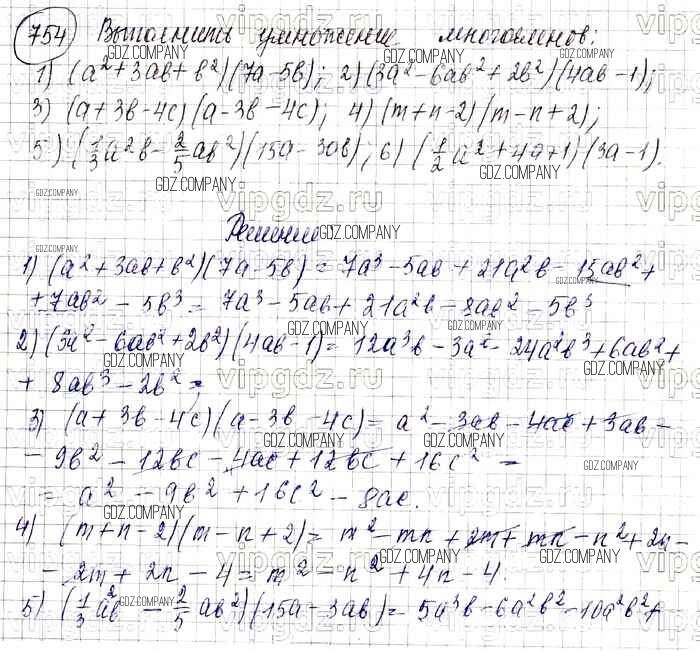 754 Выполнить умножение многочленов:
1) (a²+3ab+b²)(7a-5b); 2) (3a²-6ab²+2b²)(4ab-1);
3) (a+3b-4c)(a-3b-4c); 4) (m+n-2)(m-n+2);
5) (1/3a²b-2/5ab²)(15a-30b); 6) (1/2a²+4a+1)(3a-1).
Решение:
1) (a²+3ab+b²)(7a-5b)=7a³-5ab+21a²b-15ab²+
+7ab²-5b³=7a³-5ab+21a²b-8ab²-5b³
2) (3a²-6ab²+2b²)(4ab-1)=12a³b-3a²-24a²b³+6ab²+
+8ab³-2b²;
3) (a+3b-4c)(a-3b-4c)=a²-3ab-4ac+3ab-
-9b²-12bc-4ac+12bc+16c²=
=a²-9b²+16c²-8ac.
4) (m+n-2)(m-n+2)=m²-mn+2m+mn-n²+2n-
-2m+2n-4=m²-n²+4n-4.
5) (1/3a²b-2/5ab²)(15a-3ab)=5a³b-6a²b²-10a²b²+
GDZ.COMPANY
vipgdz.ru